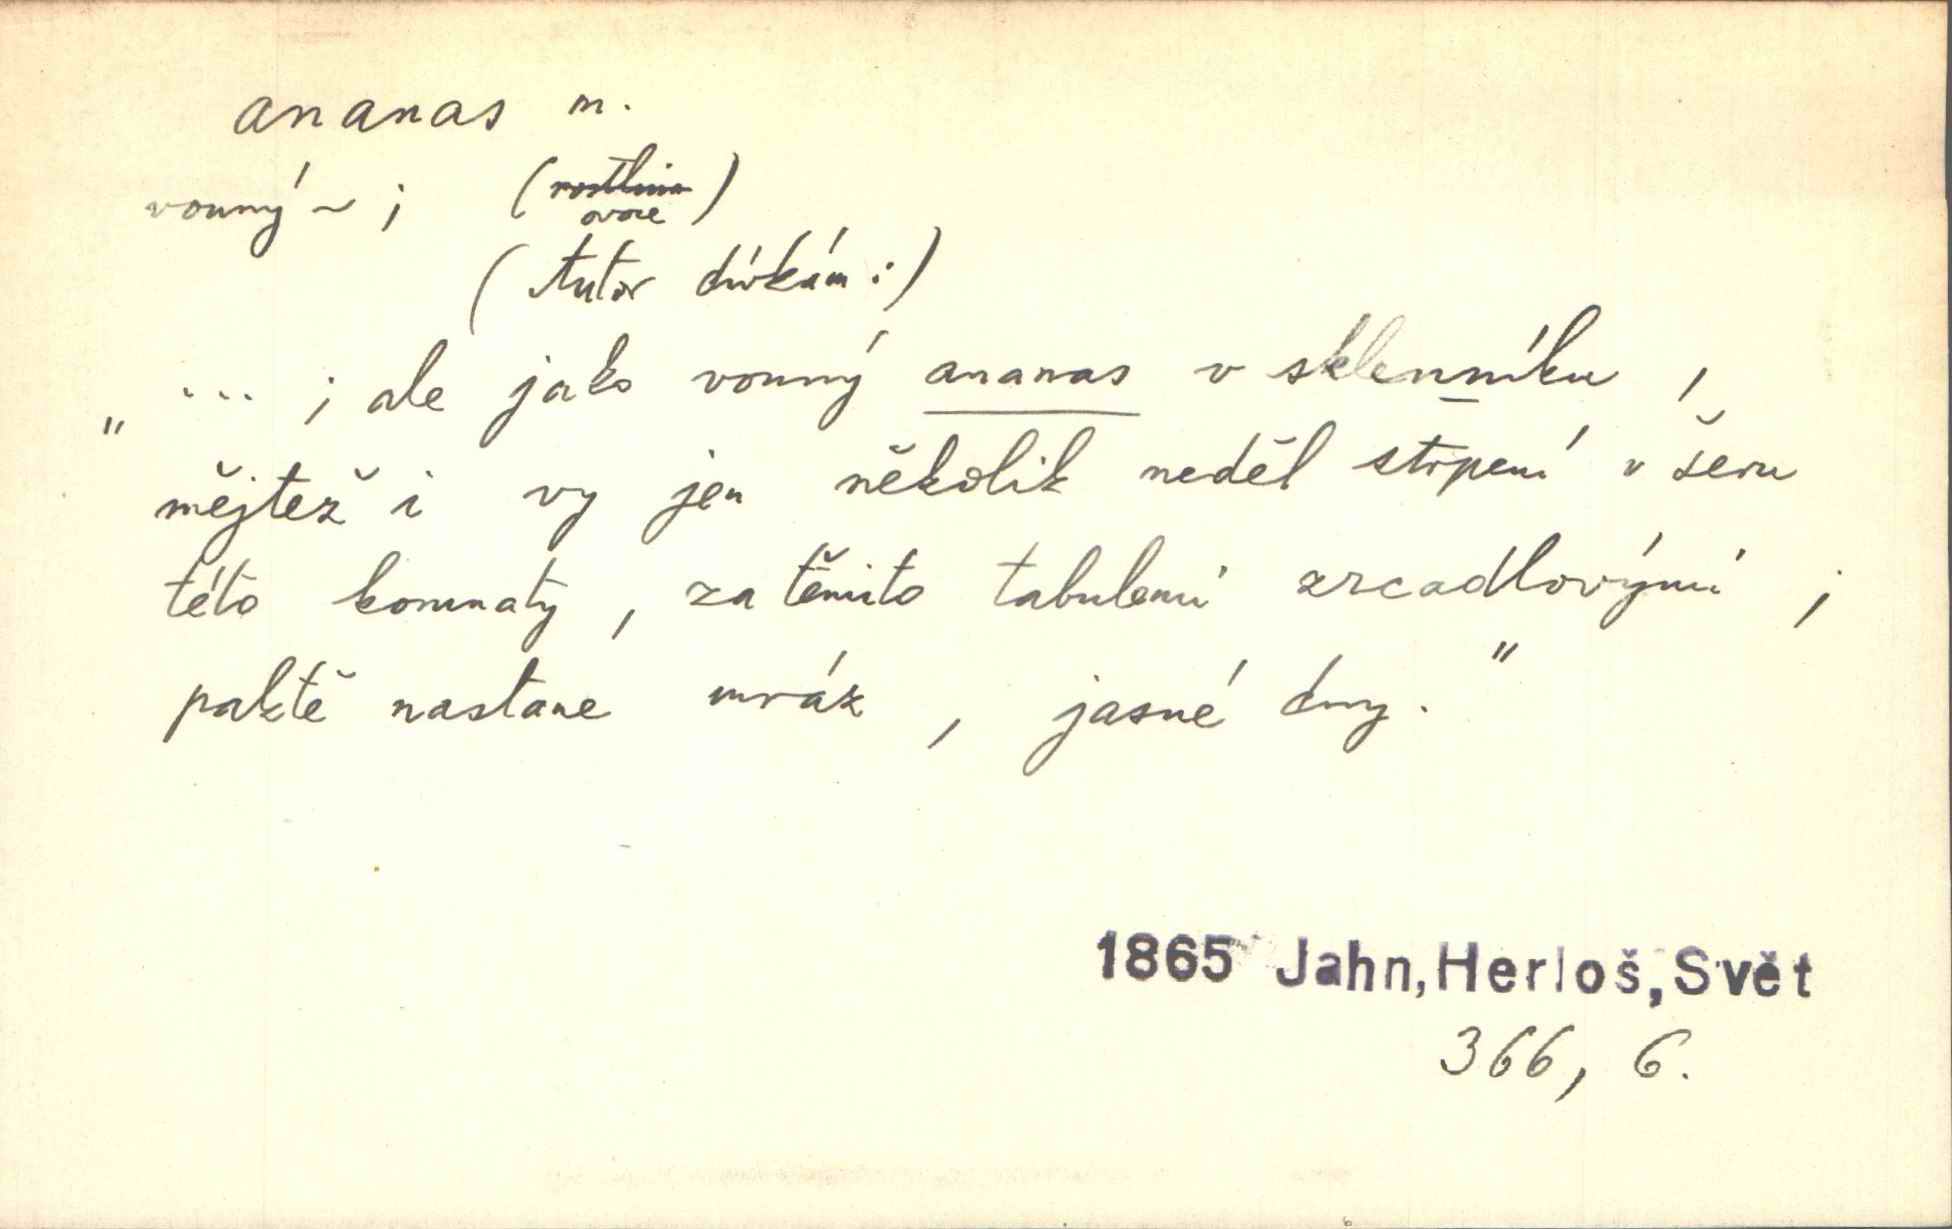 ananas m.
vonný ~ ; (~~rostlina~~
ovoce)
(Autor dívkám:)
„ ... ; ale jako vonný ananas v sklenníku ,
mějtež i vy jen několik neděl strpení v šeru
této komnaty , za těmito tabulemi zrcadlovými ;
paktě nastane mráz , jasné dny. "
1865 Jahn, Herloš, Svět
366, 6.